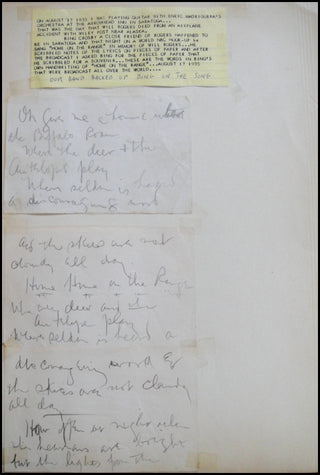 ON AUGUST 17 1935 I WAS PLAYING GUITAR WITH ENRIC MADRIGUERA'S
ORCHESTRA AT THE ARROWHEAD INN IN SARATOGA...
THAT WAS THE DAY THAT WILL ROGERS DIED FROM AN AIRPLANE
ACCIDENT WITH WILEY POST NEAR ALASKA.
BING CROSBY A CLOSE FRIEND OF ROGERS HAPPENED TO
BE IN SARATOGA AND THAT NIGHT ON A WORLD WIDE HOOK-UP HE
SANG "HOME ON THE RANGE" IN MEMORY OF WILL ROGERS...HE
SCRIBBLED NOTES OF THE LYRICS ON PIECES OF PAPER AND AFTER
THE BROADCAST I ASKED BING FOR THE PIECES OF PAPER THAT
HE SCRIBBLED FOR A SOUVENIR...THESE ARE THE WORDS IN BING'S
OWN HANDWRITING OF "HOME ON THE RANGE"...AUGUST 17 1935
THAT WERE BROADCAST ALL OVER THE WORLD....
OUR BAND BACKED UP BING ON THE SONG
Oh give me a home where
the Buffalo Roam
Where the deer & the
Antelope play
Where seldom is heard
a discouraging word
And the skies are not
cloudy all day.
Home Home on the Range
Where the deer and the
Antelope play
Where seldom is heard a
discouraging word &
the skies are not cloudy
all day
How often at night when
the heavens are bright
with the lights from the